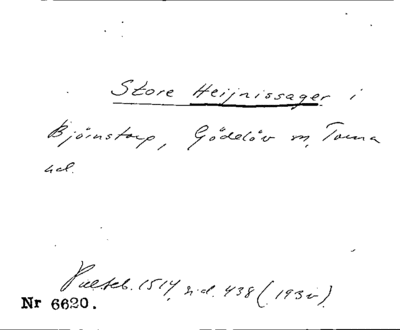 Store Heijnissager i
Björnstorp, Gödelöv sn, Torna
hd.
Palteb. 1514, sid. 438 (193v).
Nr 6620.